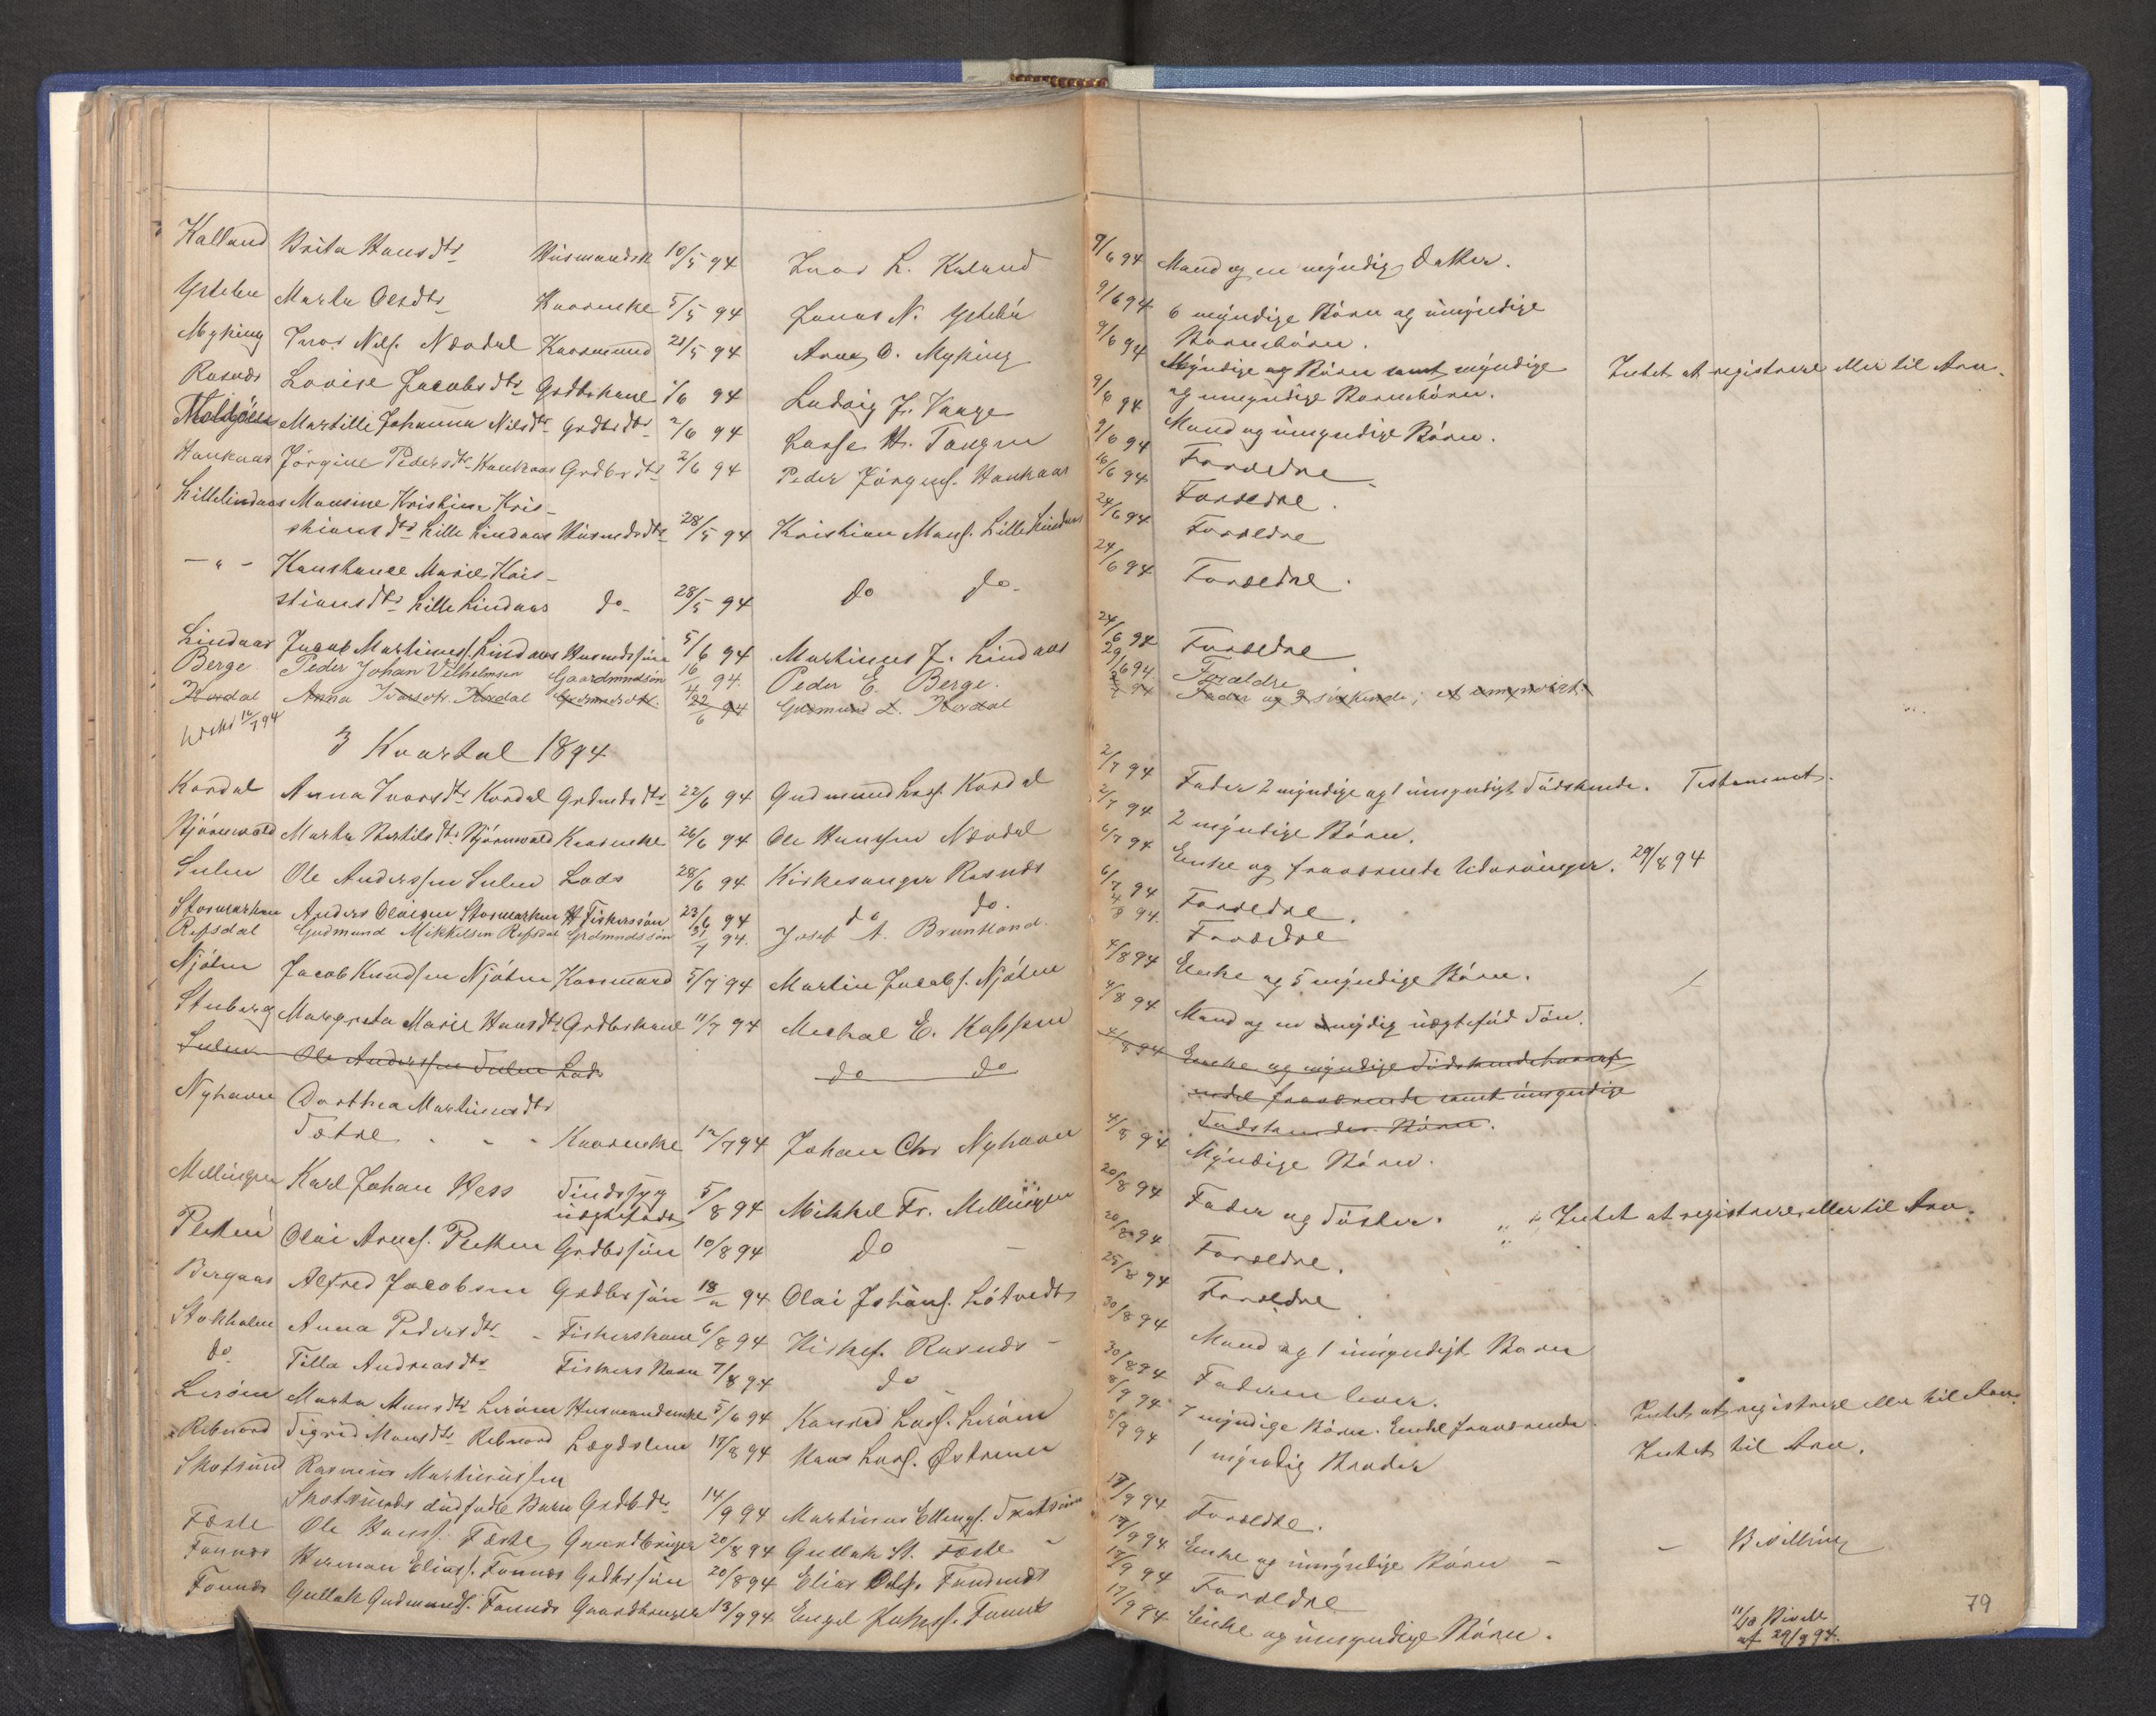 Kalland Brita Hansdtr Husmandsk 10/5 94 Ivar L. Kaland 9/6 94 Mand og en myndig Datter.
Ystebø Marta Olsdtr Kaarenke 5/5 94 Jonas N. Ystebø 9/6 94 6 myndige Børn og umyndige
Børnebørn.
Myking Ivar Nils. Nævdal Kaarmand 21/5 94 Arne O. Myking 9/6 94 Myndige og Børn samt myndige Intet at registrere eller til Arv.
og umyndige Børnebørn.
Risnes Lovise Jacobsdtr Grdbrkone 1/6 94 Ludvig J. Vaage 9/6 94 Mand og umyndige Børn.
Martille Johanna Nilsdtr Grdbrdtr 2/6 94 Lasse H. Tangen 9/6 94 Forældre
Haukaas Jörgine Pedersdtr Haukaas Grdbrdtr 2/6 94 Peder Jörgens. Haukaas 16/6 94 Forældre.
Lillelindaas Monsine Kristine Kris-
stiansdtr Lille Lindaas Husmdsdtr 28/5 94 Kristian Mons. Lille Lindaas 24/6 94 Forældre
— " — Konstanse Marie Kris-
stiansdtr Lille Lindaas do 28/5 94 do do 24/6 94 Forældre.
Lindaas Jacob Martinuss. Lindaas Husmdssøn 5/6 94 Martinus J. Lindaas 24/6 94 Forældre
Berge Peder Johan Vilhelmsen Gaardmndsøn 16/4 94. Peder E. Berge. 29/6 94. Forældre.
Kordal Anna Ivarsdtr. Kordal Grdmndsdtr. 22/6 94 Gudmund L. Kordal Fader og 3 söskende; et umyndigt.
3 Kvartal 1894
Kordal Anna Ivarsdtr Kordal Grdmdsdtr 22/6 94 Gudmund Lars. Kordal 2/7 94 Fader 2 myndige og 1 umyndigt Sødskende. Testament.
Bjørnevold Marta Bertilsdtr Bjørnevold Kaarenke 26/6 94 Ole Hansen Nævdal 2/7 94 2 myndige Børn.
Sulen Ole Anderssen Sulen Lods 28/6 94 Kirkesanger Risnes 6/7 94 Enke og fraværende Udarvinger. 29/8 94
Stormarken Anders Olaisen Stormarken Fiskerssøn 23/6 94 do do. 6/7 94 Forældre.
Refsdal Gudmund Mikkelsen Refsdal Grdmndssøn 31/7 94. Josef A. Brunkland. 4/8 94. Forældre
Njøten Jacob Knudsen Njøten Kaarmand 5/7 94 Martin Jacobs. Njøten 4/8 94 Enke og 5 myndige Børn.
Stuberg Margreta Marie Hansdtr Grdbrkone 11/7 94 Michal E. Kassen 4/8 94 Mand og en myndig uægtefød Søn.
Sulen Ole Anderssen Sulen Lods do do 4/8 94 Enke og myndige Sødskende hvoraf
endel fraværende samt umyndige
Sødskendes Børn.
Nyhavn Dorthea Martinusdtr
Sætre Kaarenke 12/7 94 Johan Chr Nyhavn 4/8 94 Myndige Børn.
Mellingen Karl Johan Hess Sindssyg
uægtefødt 5/8 94 Mikkel Fr. Mellingen 20/8 94 Fader og Søster. " " Intet at registrere eller til Arv.
Pletten Olai Arnes. Pletten Grdbrsøn 10/8 94 do — 20/8 94 Forældre.
Bergaas Alfred Jacobsen Grdbrsøn 18/ 94 Olai Johans. Løtvedt 25/8 94 Forældre
Stokholm Anna Pedersdtr - Fiskerskone 6/8 94 Kirkes. Risnes - 30/8 94 Mand og 1 umyndigt Barn
do Tilla Andreasdtr Fiskers Barn 7/8 94 do 30/8 94 Faderen lever.
Lerøen Marta Monsdtr Lerøen Husmandsenke 5/6 94 Konrad Lars. Lerøen 8/9 94 7 myndige Børn. Endel fraværende. Intet at registrere eller til Arv.
Rebnord Sigrid Monsdtr Rebnord Lægdslem 17/8 94 Hans Lars. Østrem 8/9 94 1 myndig Broder Intet til Arv.
Skotsund Rasmus Martinussen
Skotsunds dødfødte Barn Grdbdtr 14/9 94 Martinus Ellings. Skotsund 17/9 94 Forældre.
Fæste Ole Hanss. Fæste Gaardbruger 20/8 94 Gullak H. Fæste 17/9 94 Enke og umyndige Børn — — Bevilling
Fonnes Herman Elias. Fonnes Grdbrsøn 20/8 94 Elias Ols. Fonnes 17/9 94 Forældre
Fonnes Gullak Gudmunds. Fonnes Gaardbruger 13/9 94 Engel Johs. Fonnes 17/9 94 Enke og umyndige Børn. 11/10 Bevill
af 29/9 94.
79